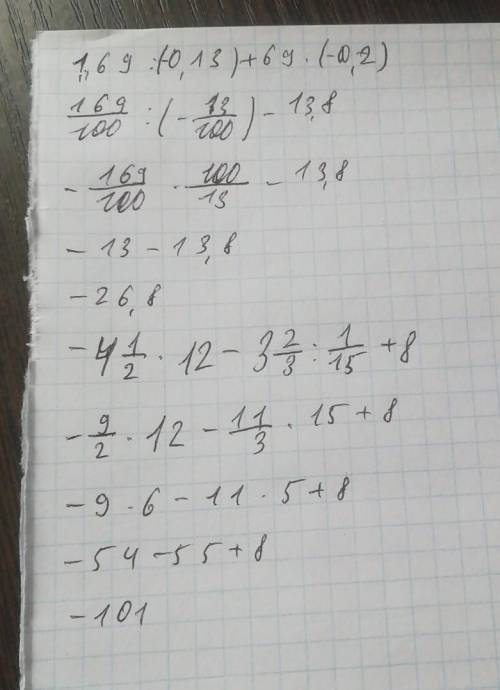 1,69 : (-0,13) + 69 · (-0,2)
169/100 : (- 13/100) - 13,8
- 169/100 · 100/13 - 13,8
- 13 - 13,8
- 26,8
- 4 1/2 · 12 - 3 2/3 : 1/15 + 8
- 9/2 · 12 - 11/3 · 15 + 8
- 9 · 6 - 11 · 5 + 8
- 54 - 55 + 8
- 101